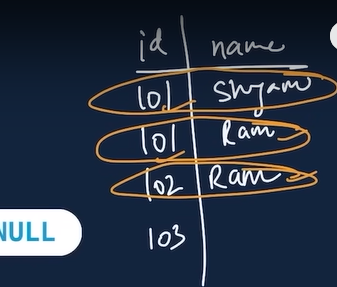 id name
101 Shyam
101 Ram
102 Ram
NULL
103